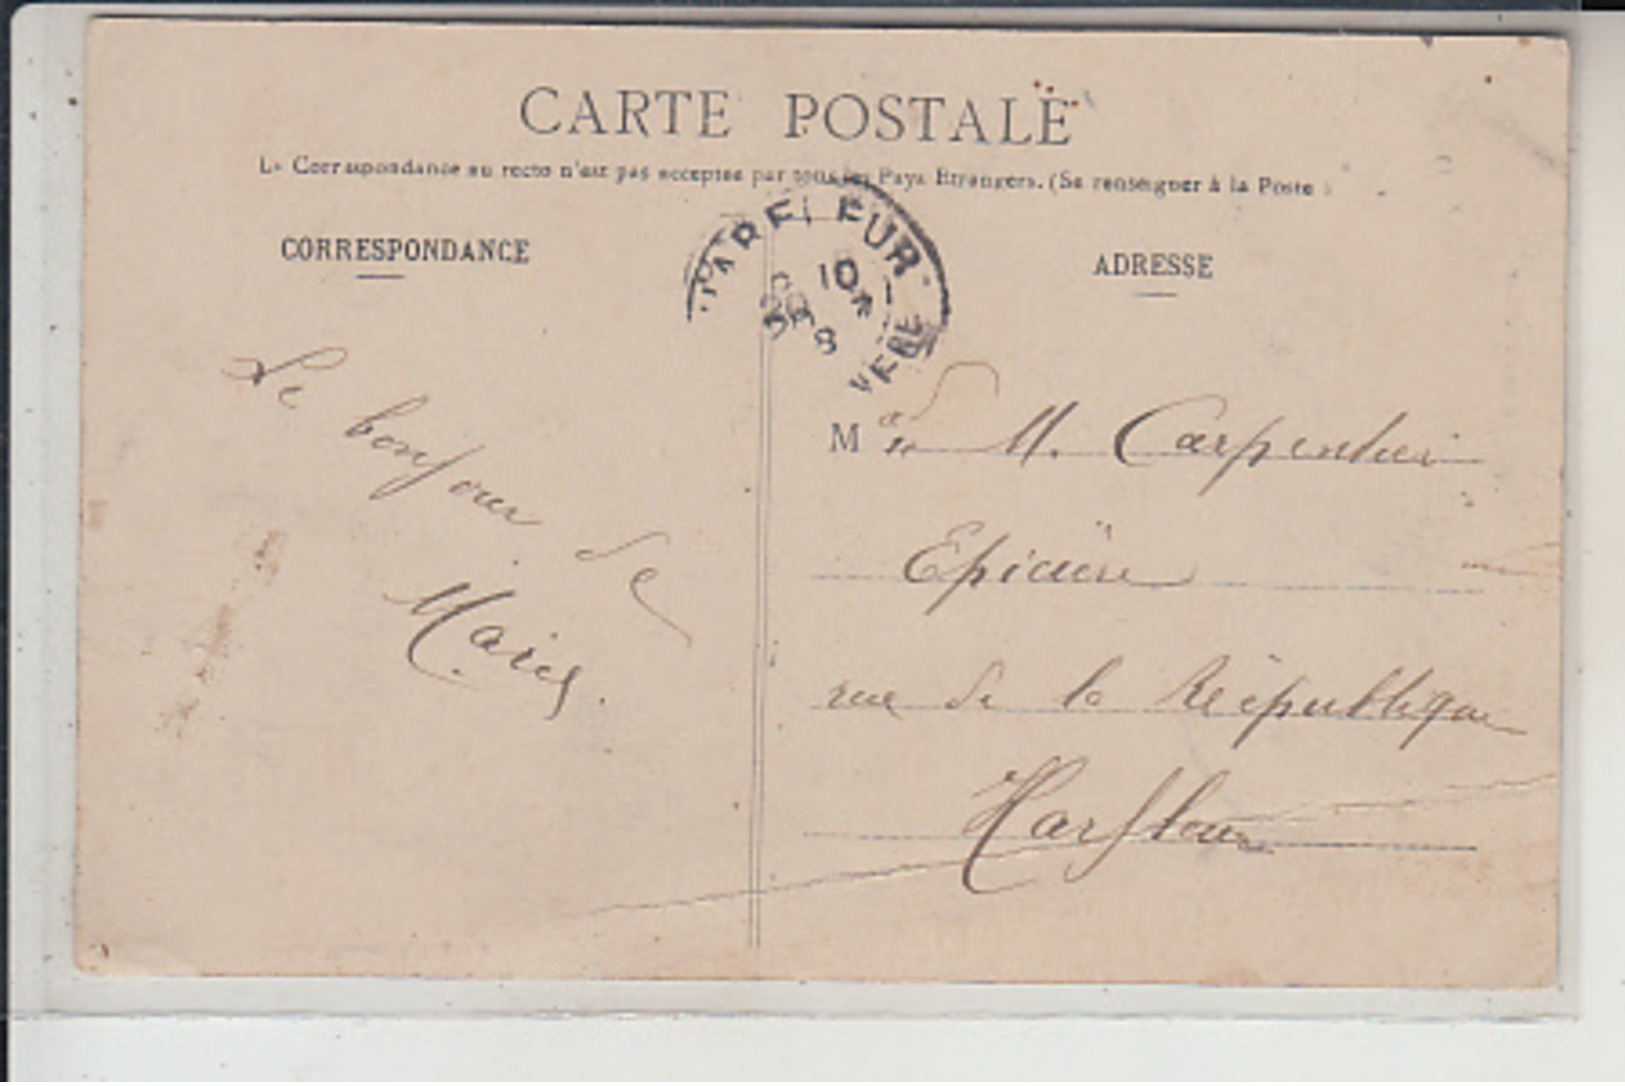 CARTE POSTALE
La Correspondance au recto n'est pas acceptée par tous les Pays Etrangers. (Se renseigner à la Poste)
CORRESPONDANCE
ADRESSE
HARFLEUR
10
8
Le bonjour de
M M. Carpentier
Epicière
rue de la République
Harfleur